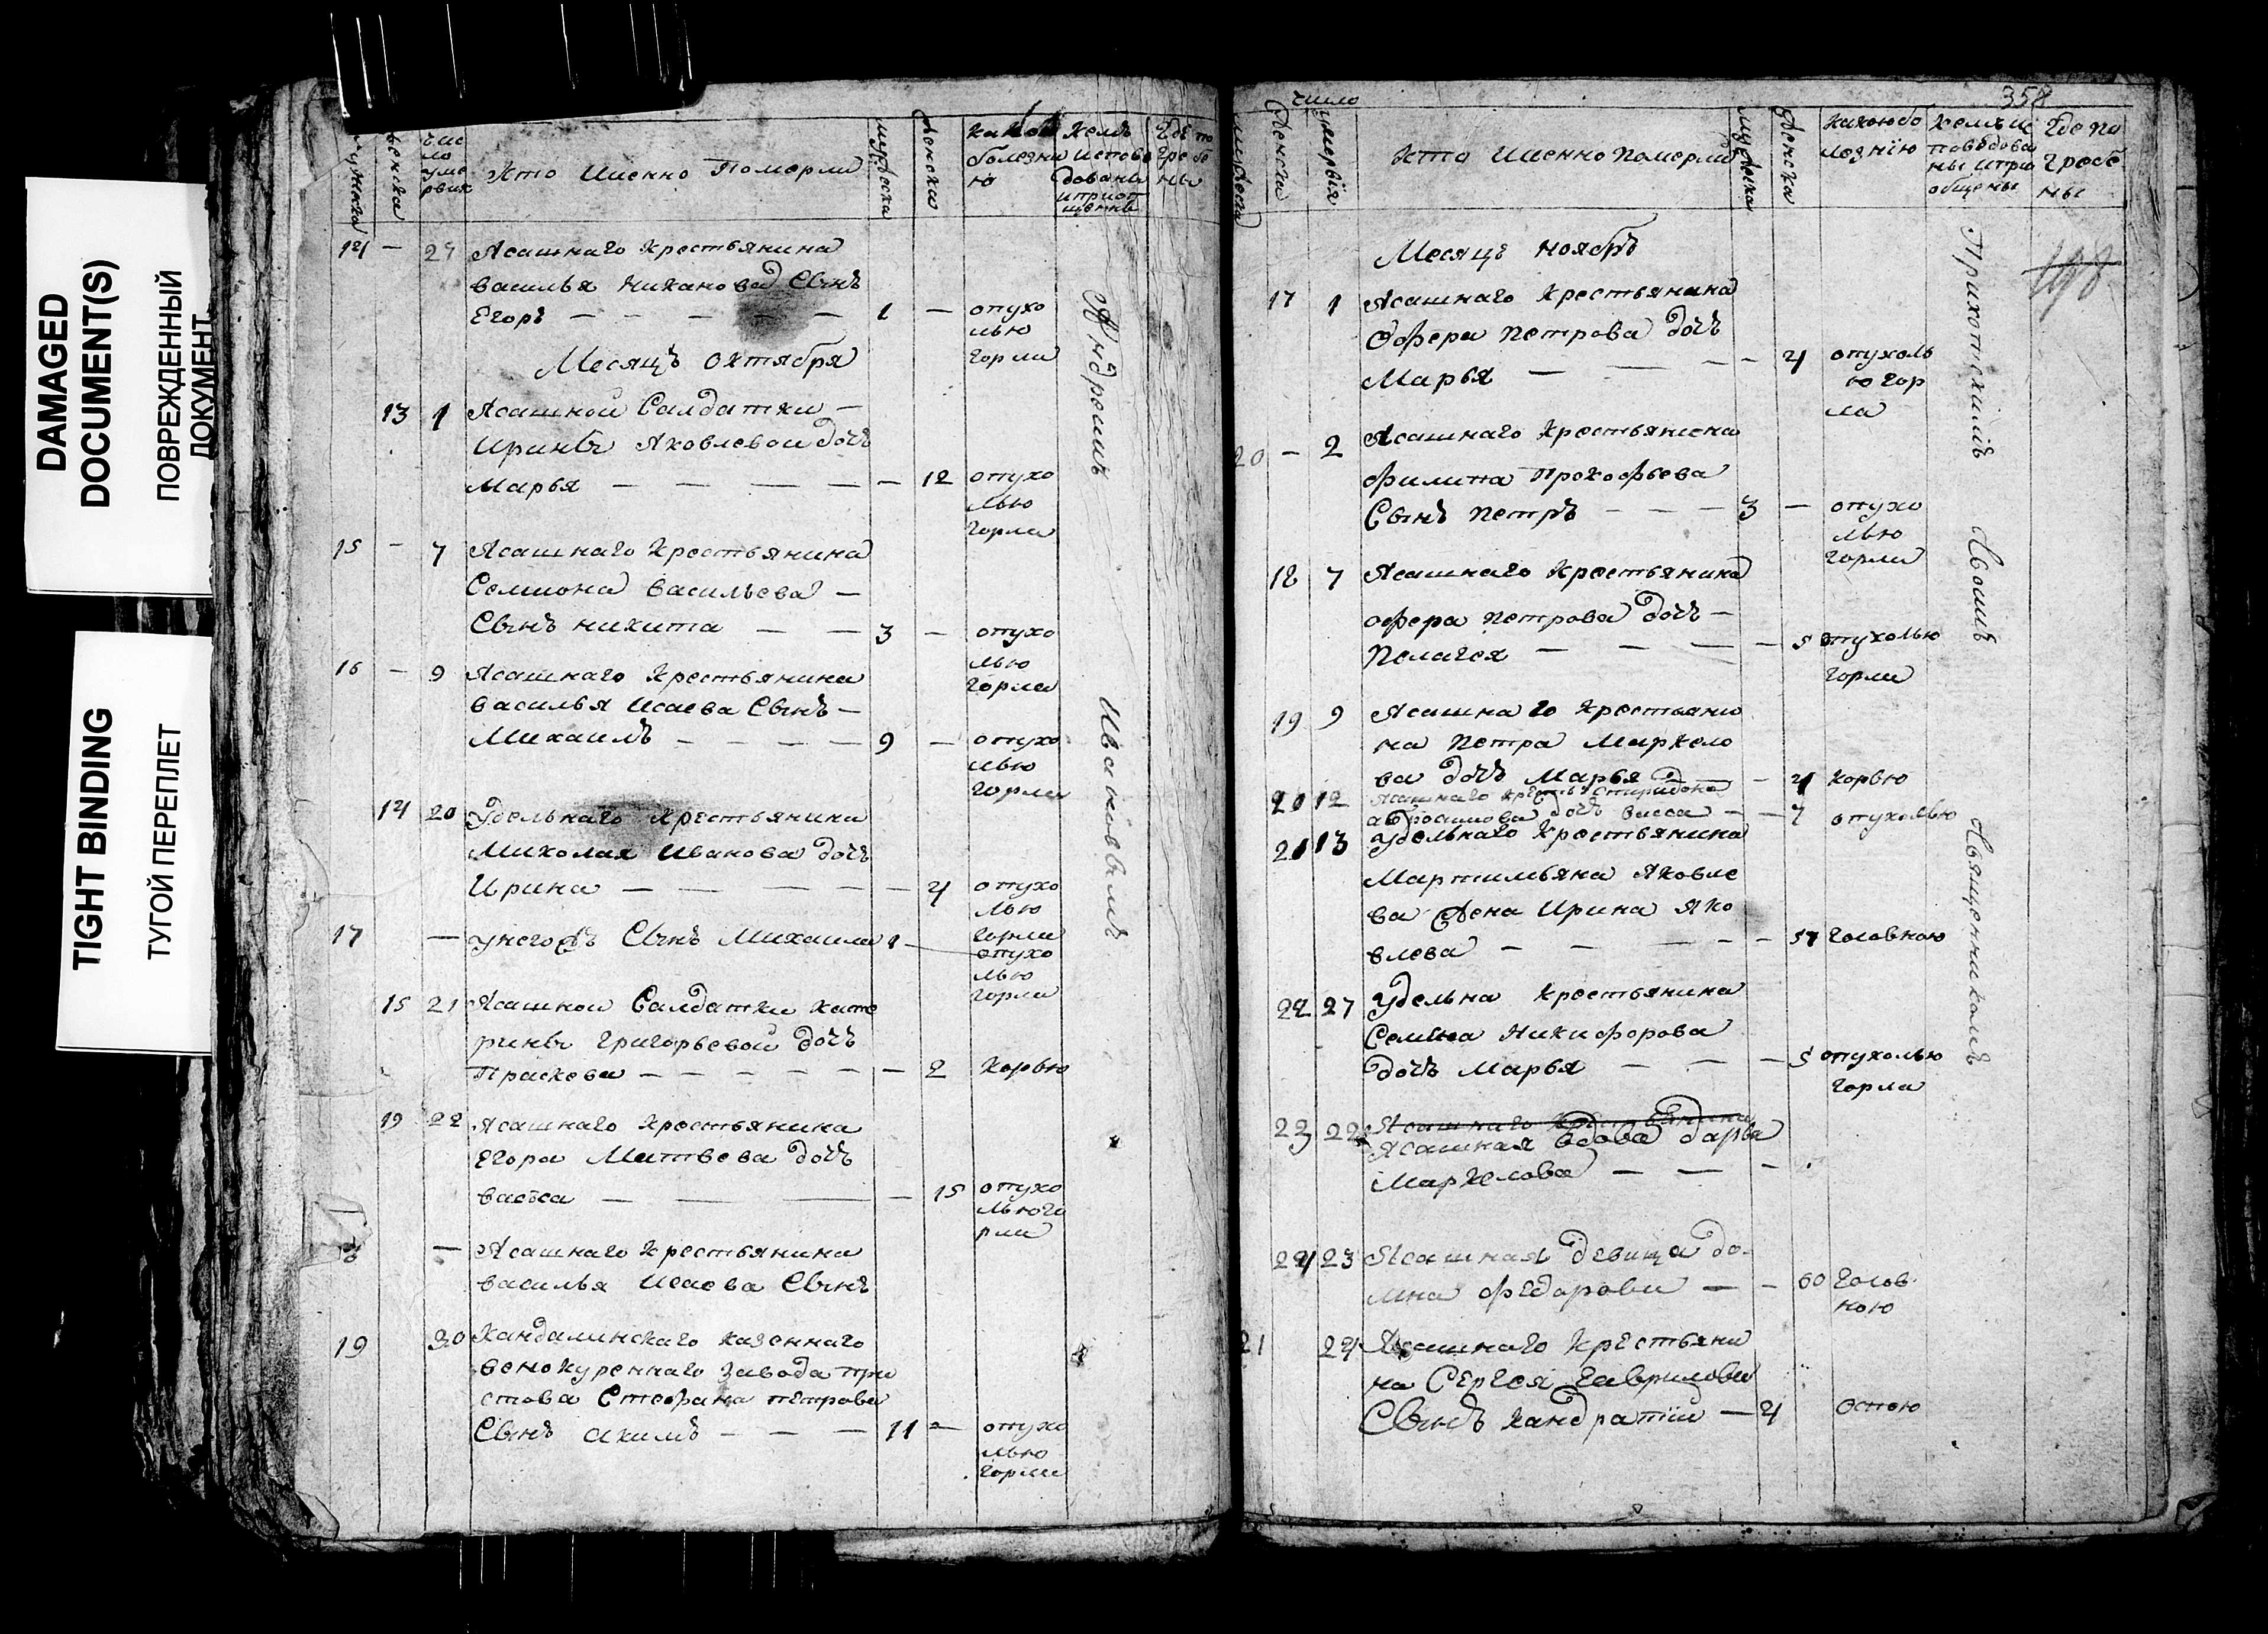 DAMAGED
DOCUMENT(S)
ПОВРЕЖДЕННЫЙ
ДОКУМЕНТ
TIGHT BINDING
ТУГОЙ ПЕРЕПЛЕТ
мужеска
женска
число умервих
Кто Именно Померли
мужеска
женска
какою болезнию
кемъ исповедованы и приобщены
Где погребены
14 — 27 Ясашнаго крестьянина
василья никанова Сынъ
Егоръ — — — — — 1 — опухо
лью
горла
Месяцъ Октября
13 1 Ясашной Салдатки —
Ирины Яковлевой дочь
Марья — — — — — 12 опухо
лью
горла
15 — 7 Ясашнаго крестьянина
Семиона васильева —
Сынъ никита — — 3 — опухо
лью
горла
16 — 9 Ясашнаго крестьянина
василья Исаева Сынъ —
Михаилъ — — — — 9 — опухо
лью
горла
14 20 Удельнаго крестьянина
Миколая Иванова дочь
Ирина — — — — — 4 опухо
лью
горла
17 — унегожъ Сынъ Михаила 1 — опухо
лью
горла
15 21 Ясашной Салдатки кате
рины григорьевой дочь
Праскева — — — — — — 2 корью
19 22 Ясашнаго крестьянина
Егора Матвева дочь
васса — — — 15 опухо
лью го
рла
— Ясашнаго крестьянина
василья Исаева Сынъ
19 30 Кандалинскаго казеннаго
венокуреннаго завода при
става Стефана петрова
Сынъ акимъ — — — 11 — опухо
лью
горла
Андреемъ Ивановымъ
358
мужеска
женска
число
умервiя
Кто Именно Померли
мужеска
женска
какою болезнiю
кемъ исповедованы и приобщены
Где погребены
Месяцъ ноябръ
17 1 Ясашнаго крестьянина
Офера Петрова дочь
Марья — — — — 4 опухоль
ю гор
ла
20 — 2 Ясашнаго крестьянина
филипа Прокофьева
Сынъ Петръ — — — 3 — опухо
лью
горла
18 7 Ясашнаго крестьянина
офера петрова дочь —
Пелагея — — — — 5 опухолью
горла
19 9 Ясашнаго крестьяни
на Петра Маркело
ва дочь Марья — 4 корью
20 12 Ясашнаго крестья Спиридона
абросимова дочь васса — — 7 опухолью
21 13 Удельнаго крестьянина
Мартимьяна Яковле
ва жена Ирина Яко
влева — — — — — 57 головною
22 27 Удельна крестьянина
Семиона Никифорова
дочь Марья — — — 5 опухолью
горла
23 22 Ясашнаго крестьянина
Ясашная вдова дарья
Маркелова — — —
24 23 Ясашная девица до
мна федорова — — 60 голов
ною
21 24 Ясашнаго крестьяни
на Сергея гаврилова
Сынъ кандратiи — 4 оспою
Прихотскимъ Своимъ Священникомъ